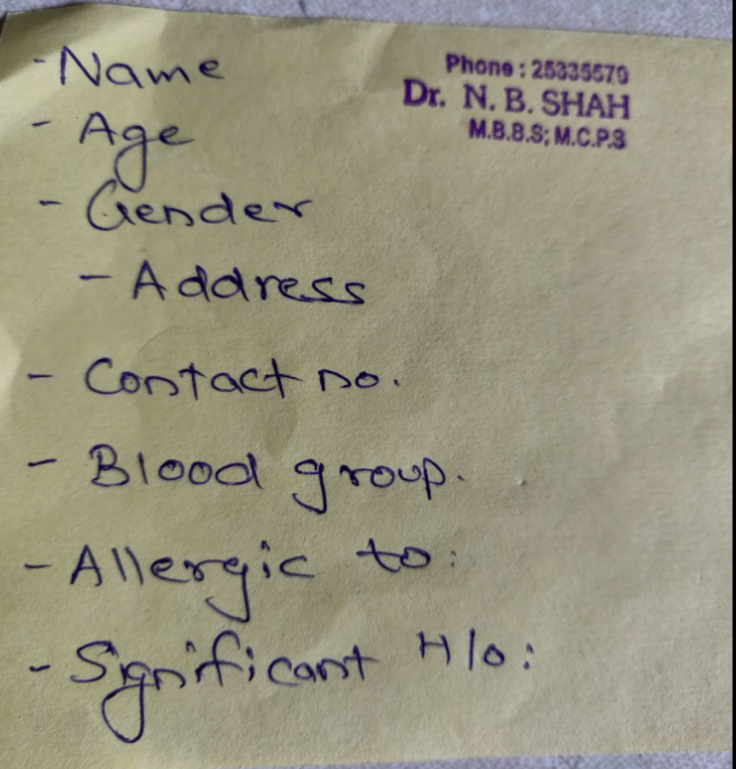 Phone : 25335570
Dr. N. B. SHAH
M.B.B.S; M.C.P.S
- Name
- Age
- Gender
- Address
- Contact no.
- Blood group.
- Allergic to:
- Significant H/o: